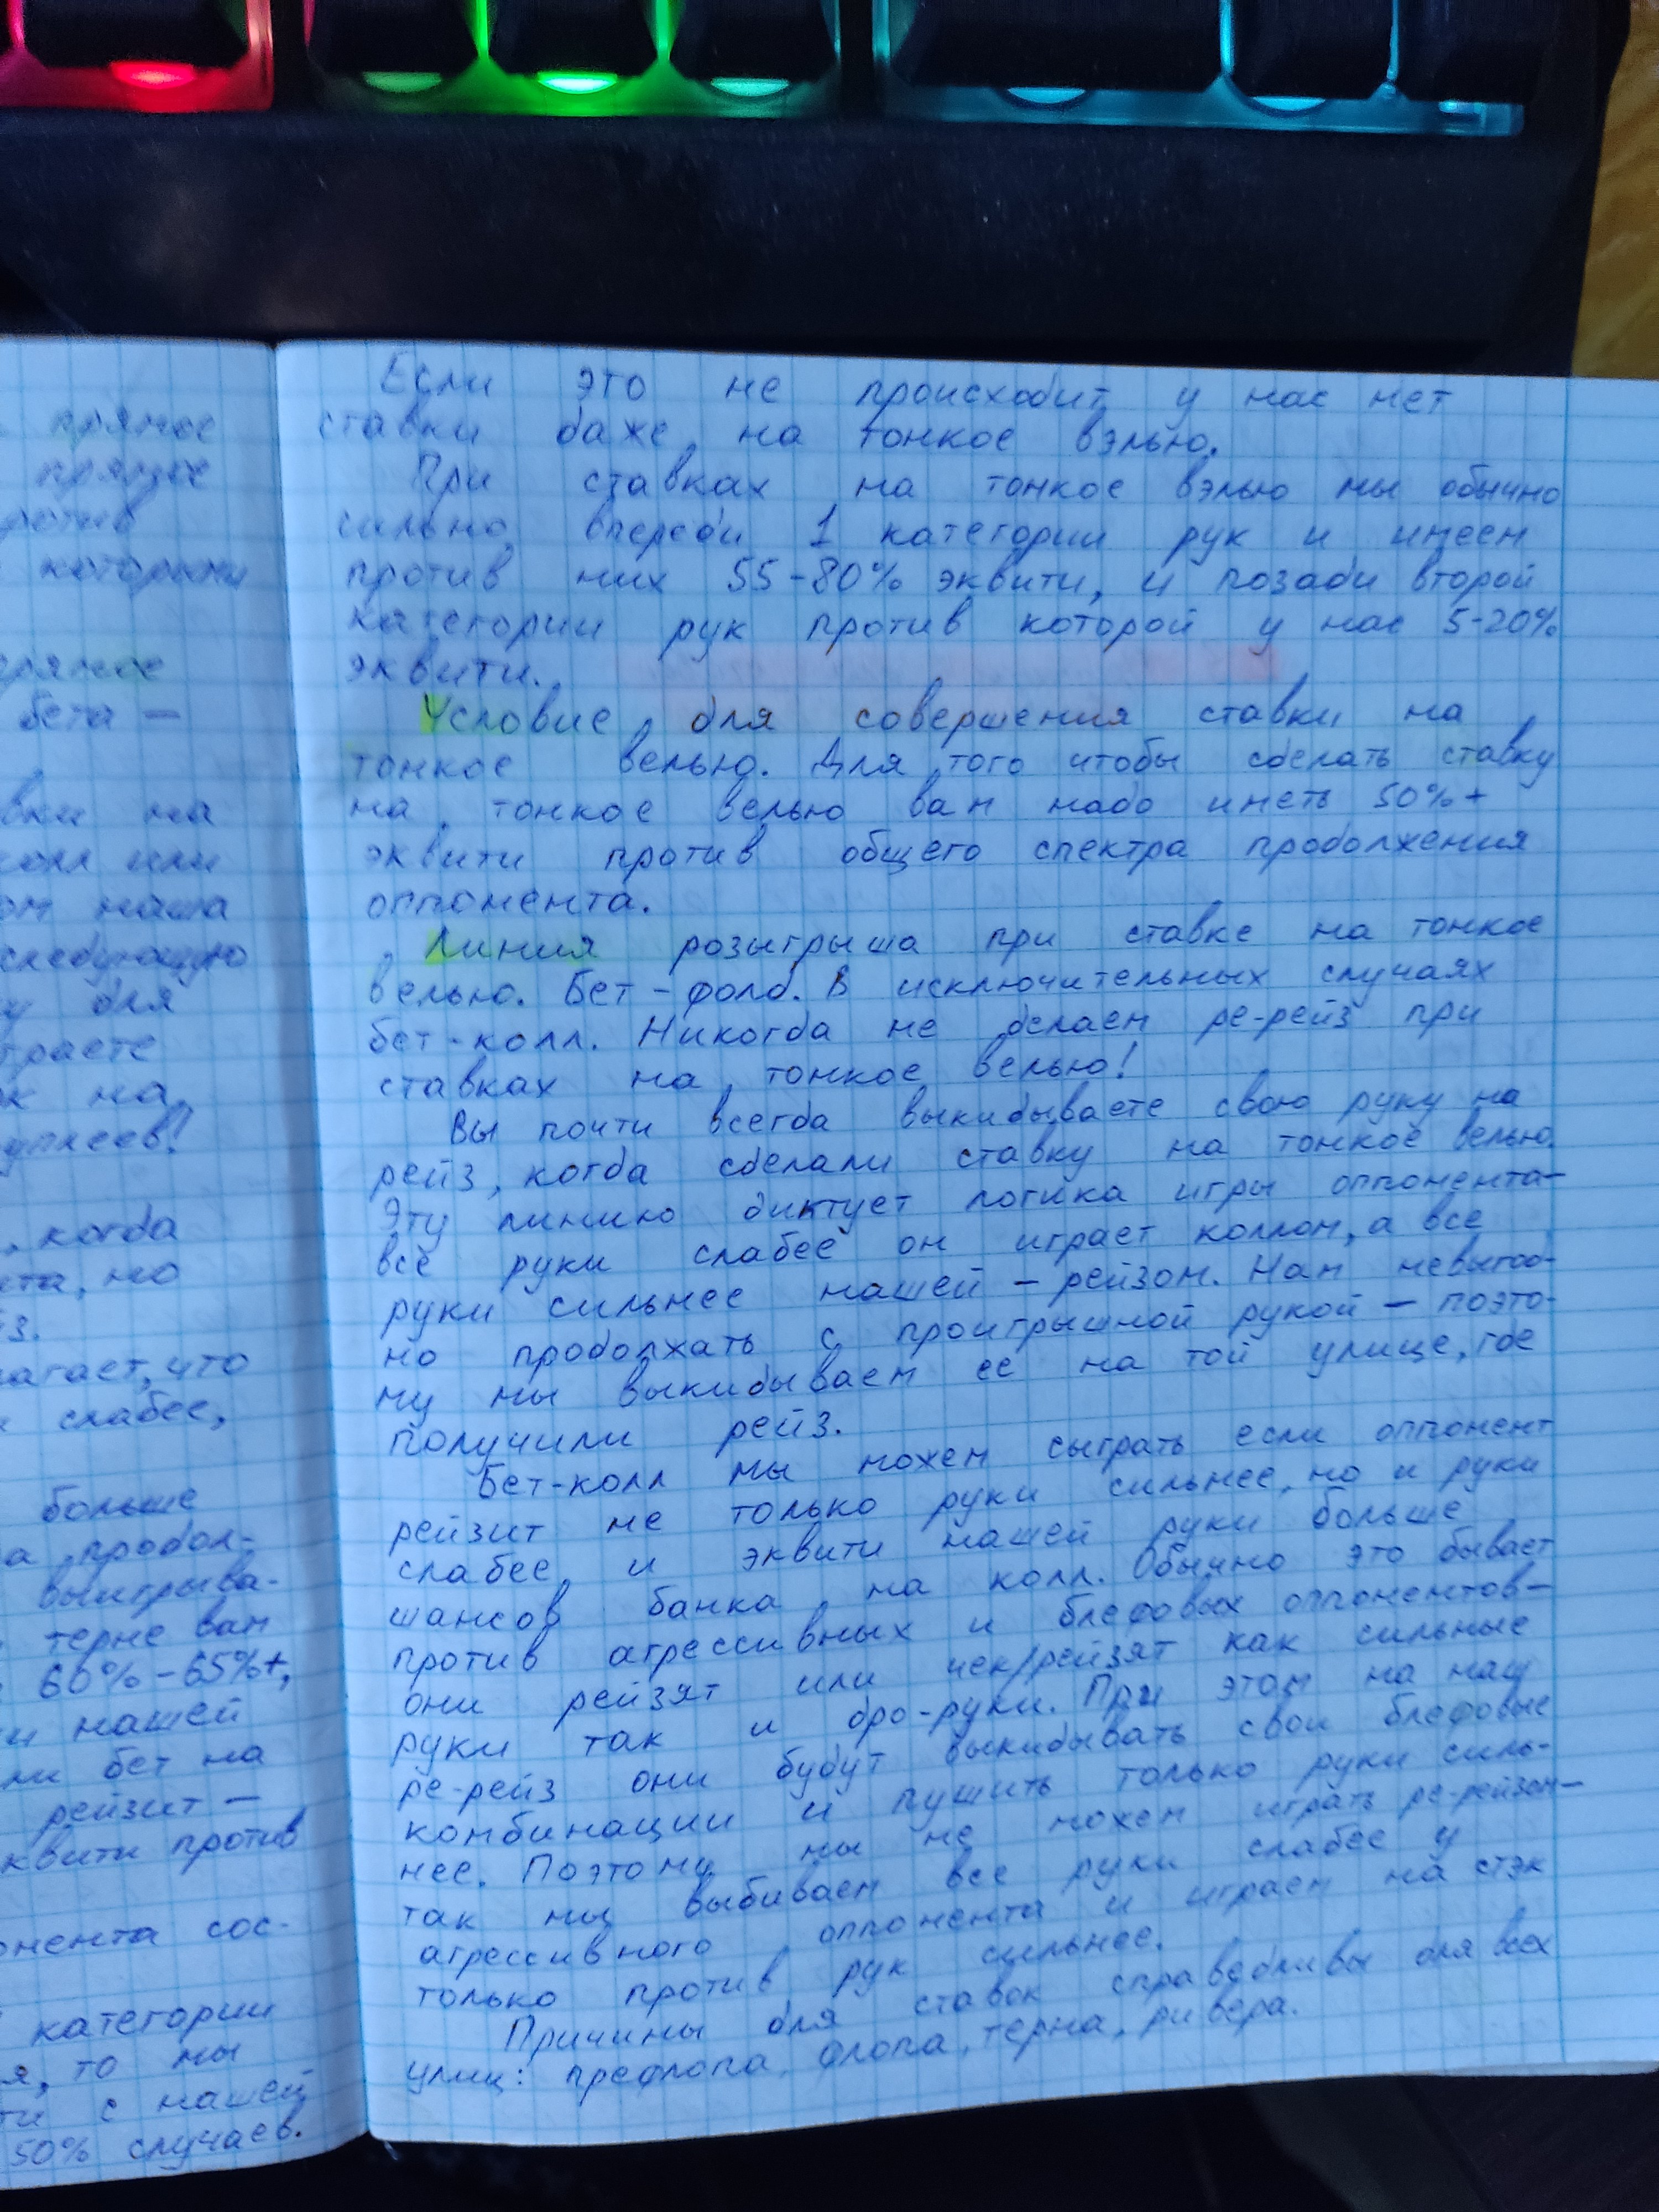 прямое
прямое
против
которыми
прямое
бета —
вки на
колл или
ом наша
следующую
у для
граете
к на
когда
но
з.
лагает, что
слабее,
больше
а продол-
выигрыва-
терне вам
60% – 65%+,
и нашей
ли бет на
рейзит —
квити против
онента сос-
категории
я, то мы
ти с нашей
50% случаев.
Если это не происходит у нас нет
ставки даже на тонкое вэлью.
При ставках на тонкое вэлью мы обычно
сильно впереди 1 категории рук и имеем
против них 55-80% эквити, и позади второй
категории рук против которой у нас 5-20%
эквити.
Условие для совершения ставки на
тонкое велью. Для того чтобы сделать ставку
на тонкое велью вам надо иметь 50%+
эквити против общего спектра продолжения
оппонента.
Линия розыгрыша при ставке на тонкое
велью. Бет - фолд. В исключительных случаях
бет - колл. Никогда не делаем ре-рейз при
ставках на тонкое велью!
Вы почти всегда выкидываете свою руку на
рейз, когда сделали ставку на тонкое велью.
Эту линию диктует логика игры оппонента-
все руки слабее он играет коллом, а все
руки сильнее нашей – рейзом. Нам невыгод-
но продолжать с проигрышной рукой – поэто-
му мы выкидываем ее на той улице, где
получили рейз.
Бет-колл мы можем сыграть если оппонент
рейзит не только руки сильнее, но и руки
слабее и эквити нашей руки больше
шансов банка на колл. Обычно это бывает
против агрессивных и блефовых оппонентов–
они рейзят или чек/рейзят как сильные
руки так и дро-руки. При этом на наш
ре-рейз они будут выкидывать свои блефовые
комбинации и пушить только руки силь-
нее. Поэтому мы не можем играть ре-рейзом–
так мы выбиваем все руки слабее у
агрессивного оппонента и играем на стэк
только против рук сильнее.
Причины для ставок справедливы для всех
улиц: префлопа, флопа, терна, ривера.